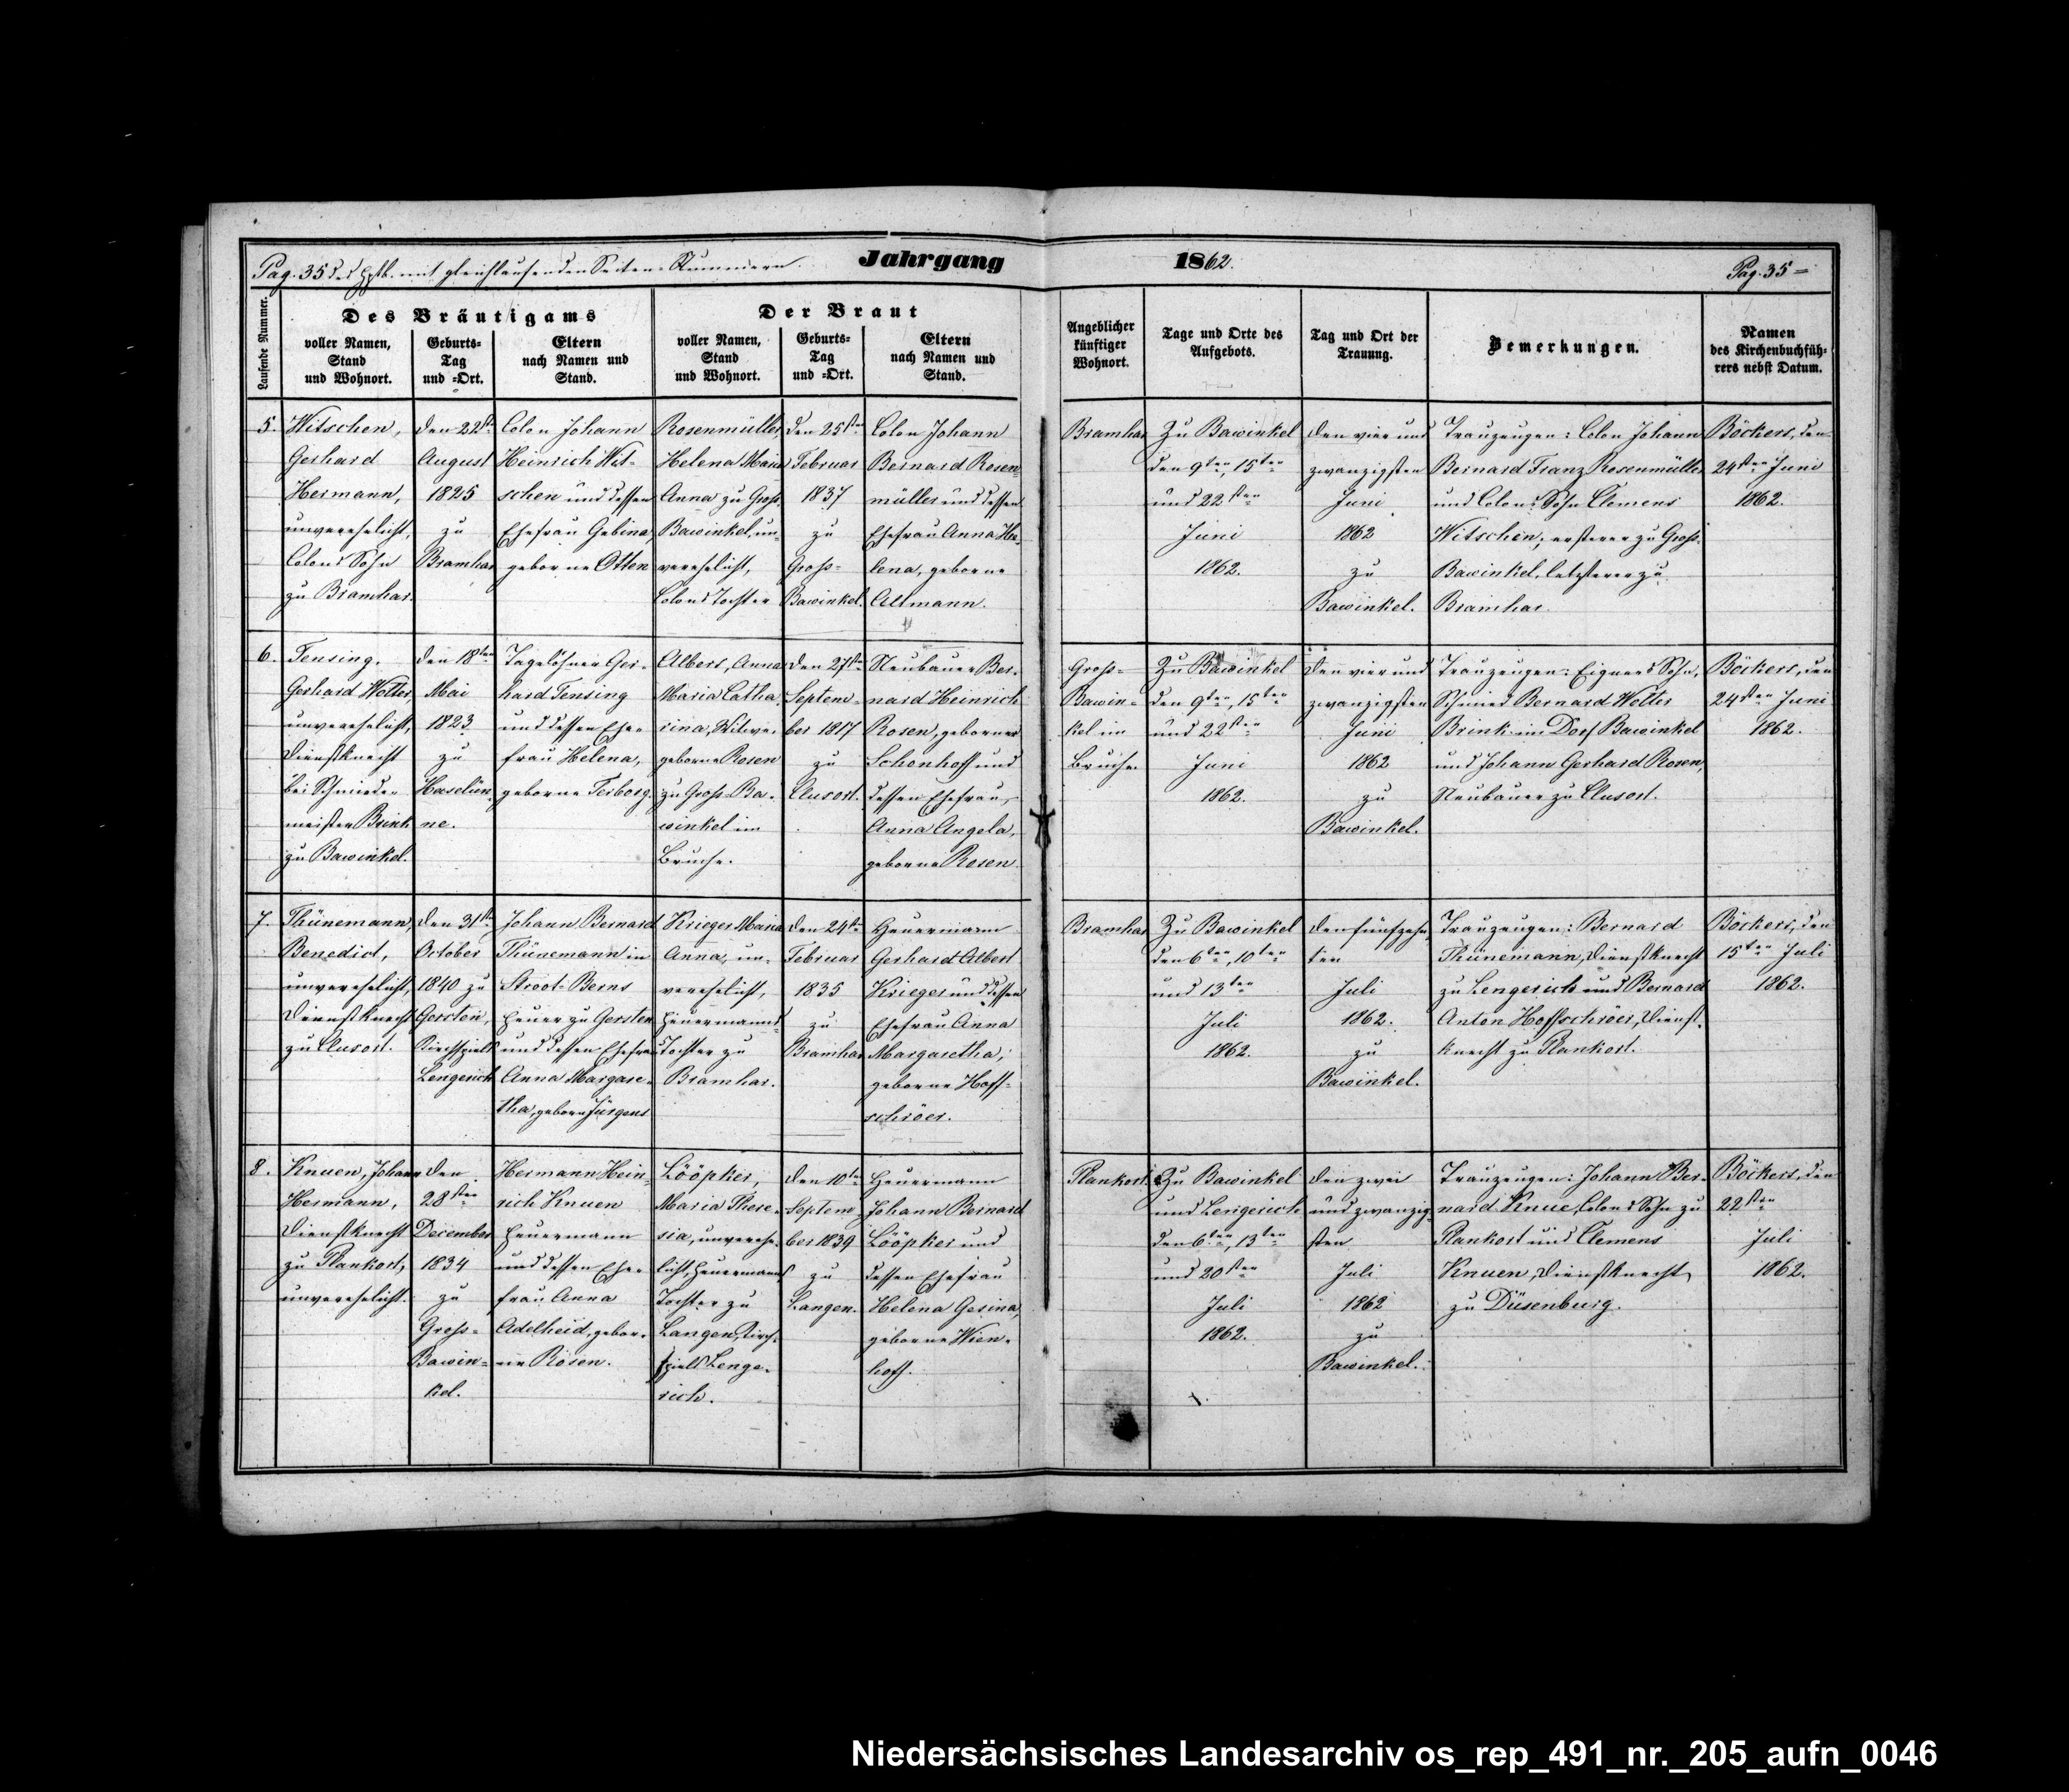 Pag. 35 des Hptb. mit gleichlaufenden Seiten-Nummern.
Jahrgang
1862.
Pag. 35
Laufende Nummer.
Des Bräutigams
voller Namen,
Stand
und Wohnort.
Geburts-
Tag
und -Ort.
Eltern
nach Namen und
Stand.
Der Braut
voller Namen,
Stand
und Wohnort.
Geburts-
Tag
und -Ort.
Eltern
nach Namen und
Stand.
Angeblicher
künftiger
Wohnort.
Tage und Orte des
Aufgebots.
Tag und Ort der
Trauung.
Bemerkungen.
Namen
des Kirchenbuchfüh-
rers nebst Datum.
5.
Witschen,
Gerhard
Hermann,
unverehelicht,
Colons Sohn
zu Bramhar.
den 22st.
August
1825
zu
Bramhar
Colon Johann
Heinrich Wit-
schen und dessen
Ehefrau Gebina,
geborne Otten
Rosenmüller,
Helena Maria
Anna zu Groß-
Bawinkel, un-
verehelicht,
Colons Tochter
den 25sten
Februar
1837
zu
Groß-
Bawinkel.
Colon Johann
Bernard Rosen-
müller und dessen
Ehefrau Anna He-
lena, geborne
Altmann.
Bramhar
Zu Bawinkel
den 9ten, 15ten
und 22sten
Juni
1862.
den vier und
zwanzigsten
Juni
1862
zu
Bawinkel.
Trauzeugen: Colon Johann
Bernard Franz Rosenmüller
und Colons Sohn Clemens
Witschen, ersterer zu Groß-
Bawinkel, letzterer zu
Bramhar.
Böckers, den
24sten Juni
1862.
6.
Tensing,
Gerhard Wolter,
unverehelicht,
Dienstknecht
bei Schmiede-
meister Brink
zu Bawinkel.
den 18ten
Mai
1823
zu
Haselün-
ne.
Tagelöhner Ger-
hard Tensing
und dessen Ehe-
frau Helena,
geborne Terborg.
Albers, Anna
Maria Catha-
rina, Witwe
geborne Rosen
zu Groß-Ba-
winkel im
Bruche.
den 27sten
Septem-
ber 1817
zu
Clusort.
Neubauer Ber-
nard Heinrich
Rosen, geborner
Schonhoff und
dessen Ehefrau
Anna Angela,
geborne Rosen
Groß-
Bawin-
kel im
Bruche
Zu Bawinkel
den 9ten, 15ten
und 22sten
Juni
1862.
den vier und
zwanzigsten
Juni
1862
zu
Bawinkel.
Trauzeugen: Eigners Sohn,
Schmied Bernard Wolter
Brink im Dorf Bawinkel
und Johann Gerhard Rosen,
Neubauer zu Clusort.
Böckers, den
24sten Juni
1862.
7.
Thünemann,
Benedict,
unverehelicht,
Dienstknecht
zu Clusort.
den 31st.
October
1840 zu
Gersten,
Kirchspiels
Lengerich
Johann Bernard
Thünemann in
Stroot-Berns
Heuer zu Gersten
und dessen Ehefrau
Anna Margare-
tha, geborne Jürgens
Krieger Maria
Anna, un-
verehelicht,
Heuermanns
Tochter zu
Bramhar.
den 24sten
Februar
1835
zu
Bramhar
Heuermann
Gerhard Albert
Krieger und dessen
Ehefrau Anna
Margaretha,
geborne Hoff-
schröer.
Bramhar
Zu Bawinkel
den 6ten, 10ten
und 13ten
Juli
1862.
den fünfzehn-
ten
Juli
1862.
zu
Bawinkel.
Trauzeugen: Bernard
Thünemann, Dienstknecht
zu Lengerich und Bernard
Anton Hoffschröer, Dienst-
knecht zu Plankort.
Böckers, den
15ten Juli
1862.
8.
Knuen, Johann
Hermann,
Dienstknecht
zu Plankort,
unverehelicht.
den
28sten
December
1834
zu
Groß-
Bawin-
kel.
Hermann Hein-
rich Knuen
Heuermann
und dessen Ehe-
frau Anna
Adelheid, gebor-
ne Rosen.
Lööpker,
Maria There-
sia, unverehe-
licht, Heuermanns
Tochter zu
Langen, Kirch-
spiels Lenge-
rich.
den 10ten
Septem-
ber 1839
zu
Langen.
Heuermann
Johann Bernard
Lööpker und
dessen Ehefrau
Helena Gesina,
geborne Wien-
hoff.
Plankort.
Zu Bawinkel
und Lengerich
den 6ten, 13ten
und 20sten
Juli
1862.
den zwei
und zwanzig-
sten
Juli
1862
zu
Bawinkel.
Trauzeugen: Johann Ber-
nard Knue, Colons Sohn zu
Plankort und Clemens
Knuen, Dienstknecht
zu Düsenburg.
Böckers, den
22sten
Juli
1862.
Niedersächsisches Landesarchiv os_rep_491_nr._205_aufn_0046